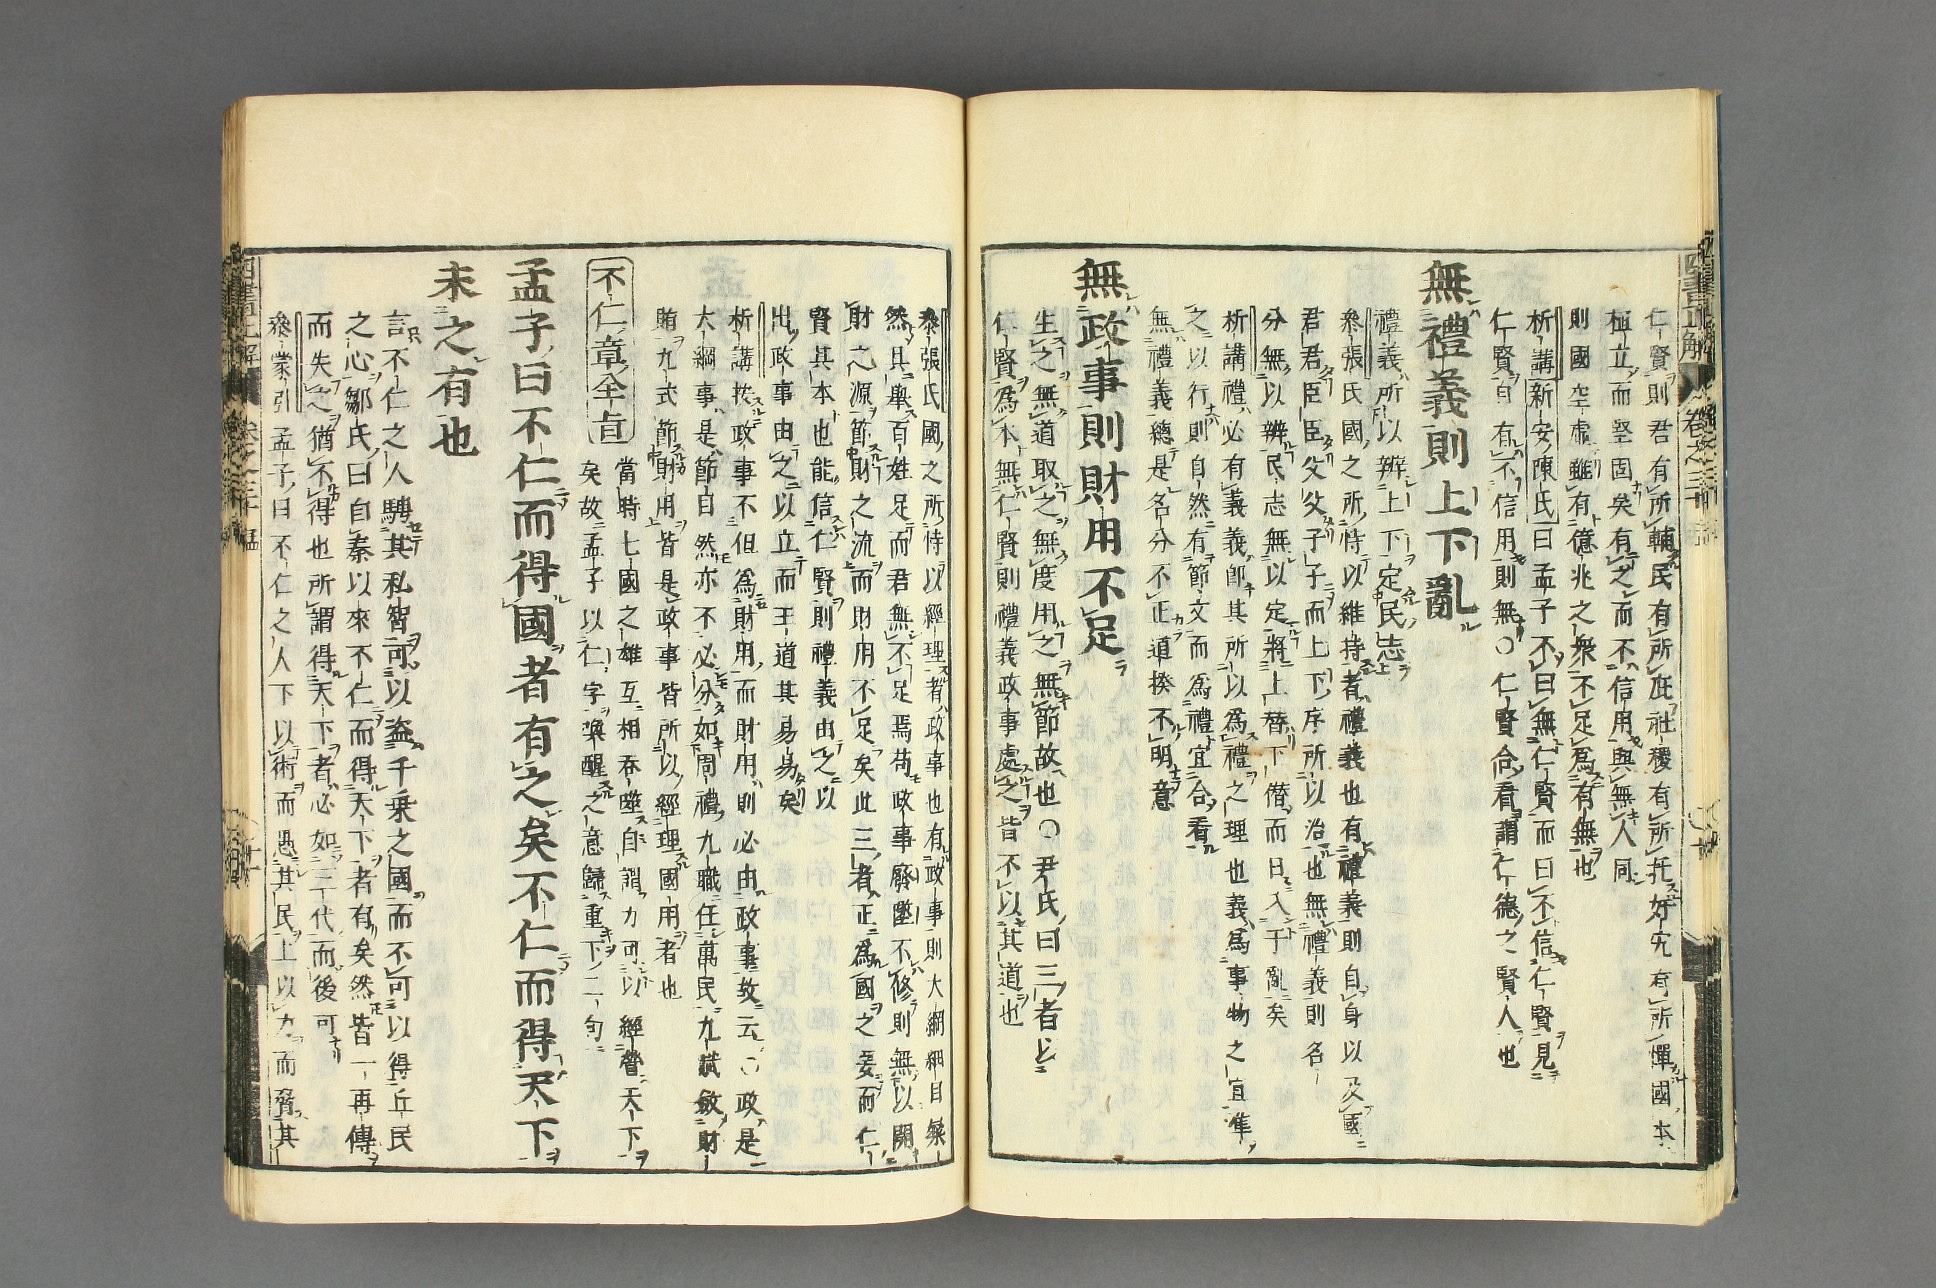 仁賢則君有所輔民有所庇社稷有所托奸宄有所憚國本
植立而堅固矣有之而不信用與無人同
則國空虛雖有億兆之衆不足爲有無也
析講新安陳氏曰孟子不曰無仁賢而曰不信仁賢見
仁賢自有不信用則無○仁賢合看謂仁德之賢人也
無禮義則上下亂
禮義所以辨上下定民志
參張氏國之所恃以維持者禮義也有禮義則自身以及國
君君臣臣父父子子而上下序所以治也無禮義則名
分無以辨民志無以定將上替下僣而日入于亂矣
析講禮必有義義卽其所以爲禮之理也義爲事物之宜準
之以行則自然有節文而爲禮宜合看
無禮義總是名分不正道揆不明意
無政事則財用不足
生之無道取之無度用之無節故也○尹氏曰三者以
仁賢爲本無仁賢則禮義政事處之皆不以其道也
參張氏國之所恃以經理者政事也有政事則大綱細目粲
然其舉百姓足而君無不足焉苟政事廢墜不修則無以開
財之源節財之流而財用不足矣此三者正爲國之要而仁
賢其本也能信仁賢則禮義由之以
出政事由之以立而王道其易易矣
析講按政事不但爲財用而財用則必由政事故云○政是
大綱事是節目然亦不必分如周禮九職任萬民九賦斂財
賄九式節財用皆是政事皆所以經理國用者也
不仁章全旨
當時七國之雄互相吞噬自謂力可以經營天下
矣故孟子以仁字喚醒之意歸重下二句
孟子曰不仁而得國者有之矣不仁而得天下
未之有也
言不仁之人騁其私智可以盜千乘之國而不可以得丘民
之心鄒氏曰自秦以來不仁而得天下者有矣然皆一再傳
而失之猶不得也所謂得天下者必如三代而後可
參蒙引孟子曰不仁之人下以術而愚其民上以力而脅其